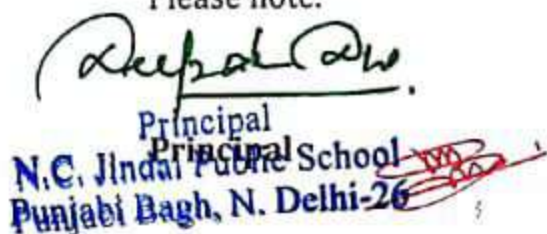 Please note.
Principal
Principal
N.C. Jindal Public School
Punjabi Bagh, N. Delhi-26